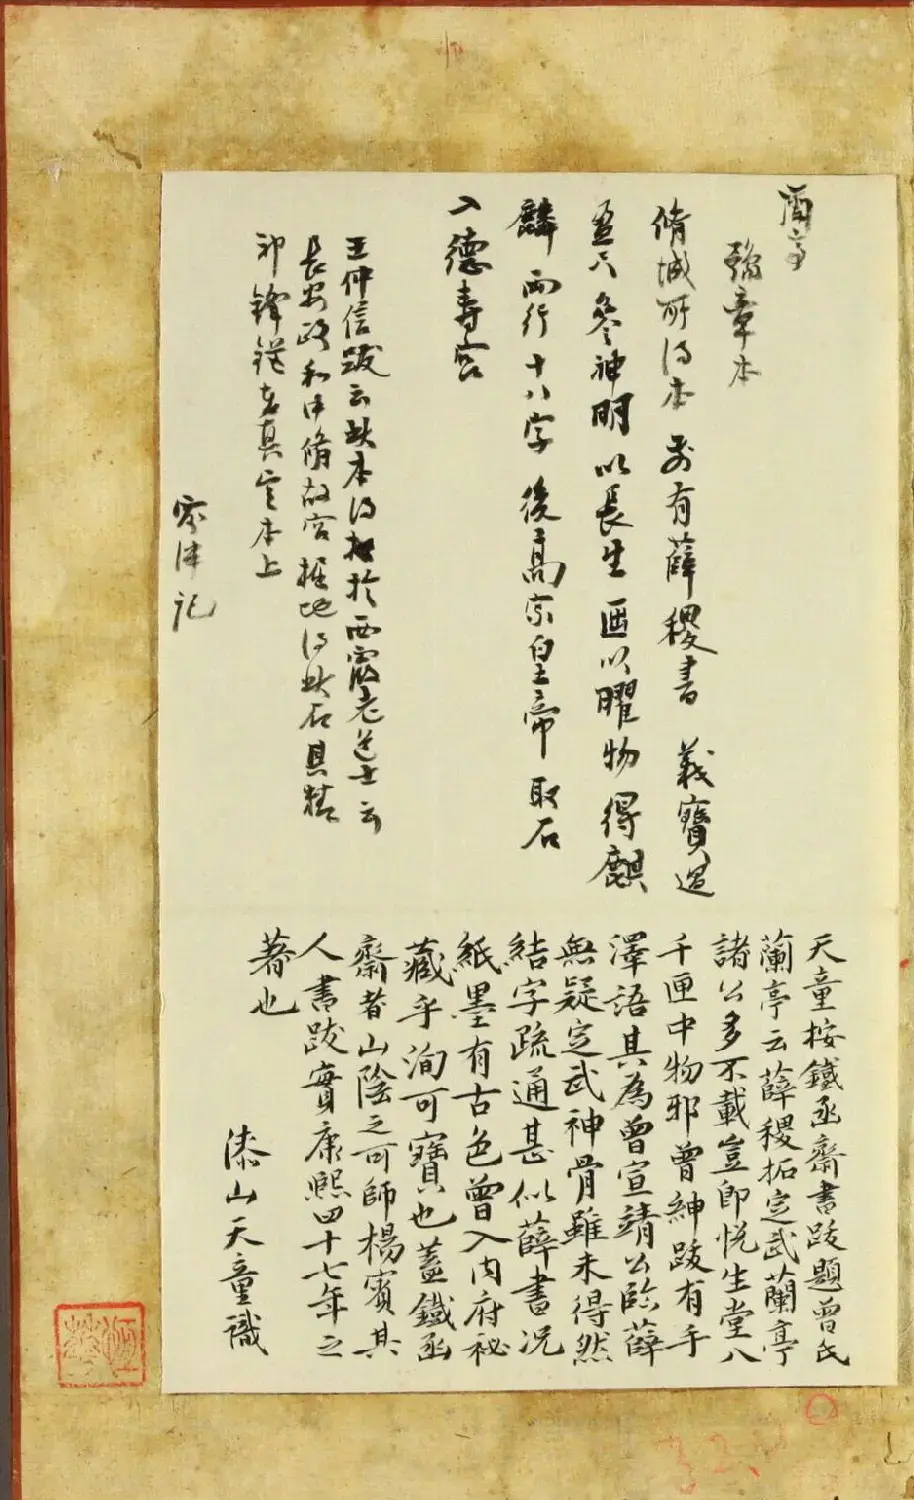 蘭亭
豫章本
脩城所得本 前有薛稷書 義寶過
盈尺參神明以長生 匭以曜物得麒
麟 兩行十八字 後高宗皇帝取石
入德壽宮
王仲信跋云此本得於西霞老道士云
長安政和中脩故宮掘地得此石具精
神鋒鋩在真定本上
記
天童按鐵函齋書跋題曾氏
蘭亭云薛稷拓定武蘭亭
諸公多不載豈即悅生堂八
千匣中物邪曾紳跋有手
澤語其為曾宣靖公臨薛
無疑定武神骨雖未得然
結字疏通甚似薛書況
紙墨有古色曾入內府秘
藏乎洵可寶也蓋鐵函
齋者山陰之可師楊賓其
人書跋實康熙四十七年之
著也
漆山天童識